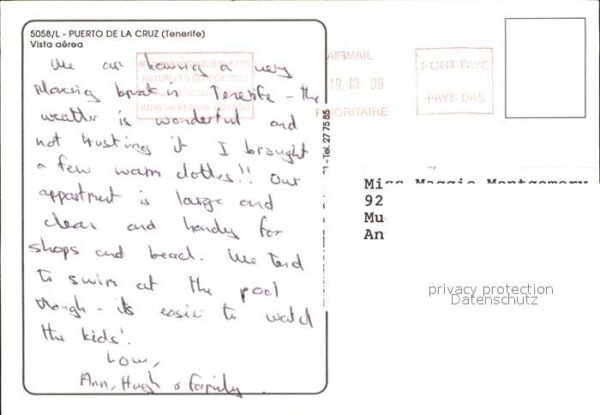 5058/L - PUERTO DE LA CRUZ (Tenerife)
Vista aérea
We are having a very
relaxing break in Tenerife - the
weather is wonderful and
not trusting it I brought
a few warm clothes!! Our
appartment is large and
clean and handy for
shops and beach. We tend
to swim at the pool
though - its easier to watch
the kids!
Love,
Ann, Hugh & family.
AIRMAIL
19.10.96
PRIORITAIRE
PORT PAYE
PAYS-BAS
Tel. 27 75 85
Miss Maggie Montgomery
92
Mu
An
privacy protection
Datenschutz